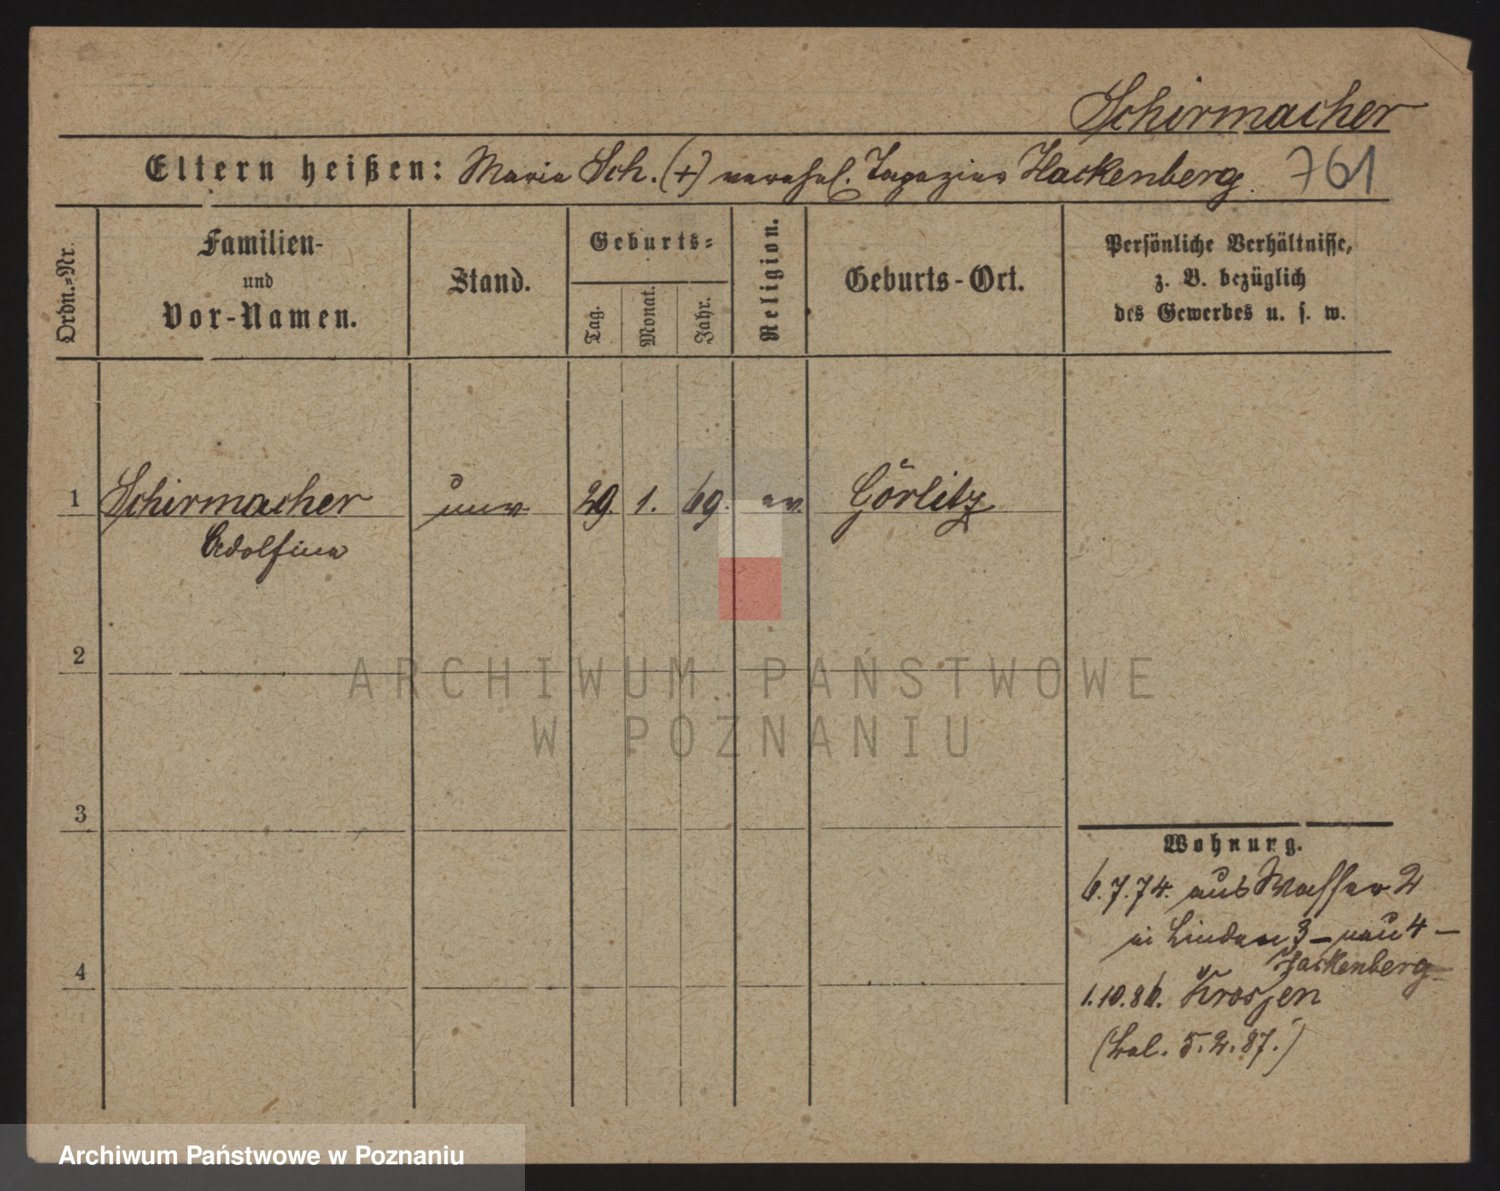 Schirmacher
Eltern heißen: Maria Sch. (+) verehel. Tapezier Hackenberg. 761
Ordn.-Nr.
Familien-
und
Vor-Namen.
Stand.
Geburts-
Tag.
Monat.
Jahr.
Religion.
Geburts-Ort.
Persönliche Verhältnisse,
z. B. bezüglich
des Gewerbes u. s. w.
1 Schirmacher unv 29. 1. 69. ev. Görlitz
Adolfine
2
3
4
Wohnung.
6.7.74. aus Wasser 2
in Linden 3 – neu 4 –
Hackenberg
1.10.86. Krosjen
(Lal. 5.2.87.)
ARCHIWUM PAŃSTWOWE
W POZNANIU
Archiwum Państwowe w Poznaniu